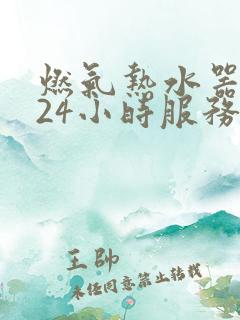 燃氣熱水器
24小時服務
王帥
未經同意禁止轉載